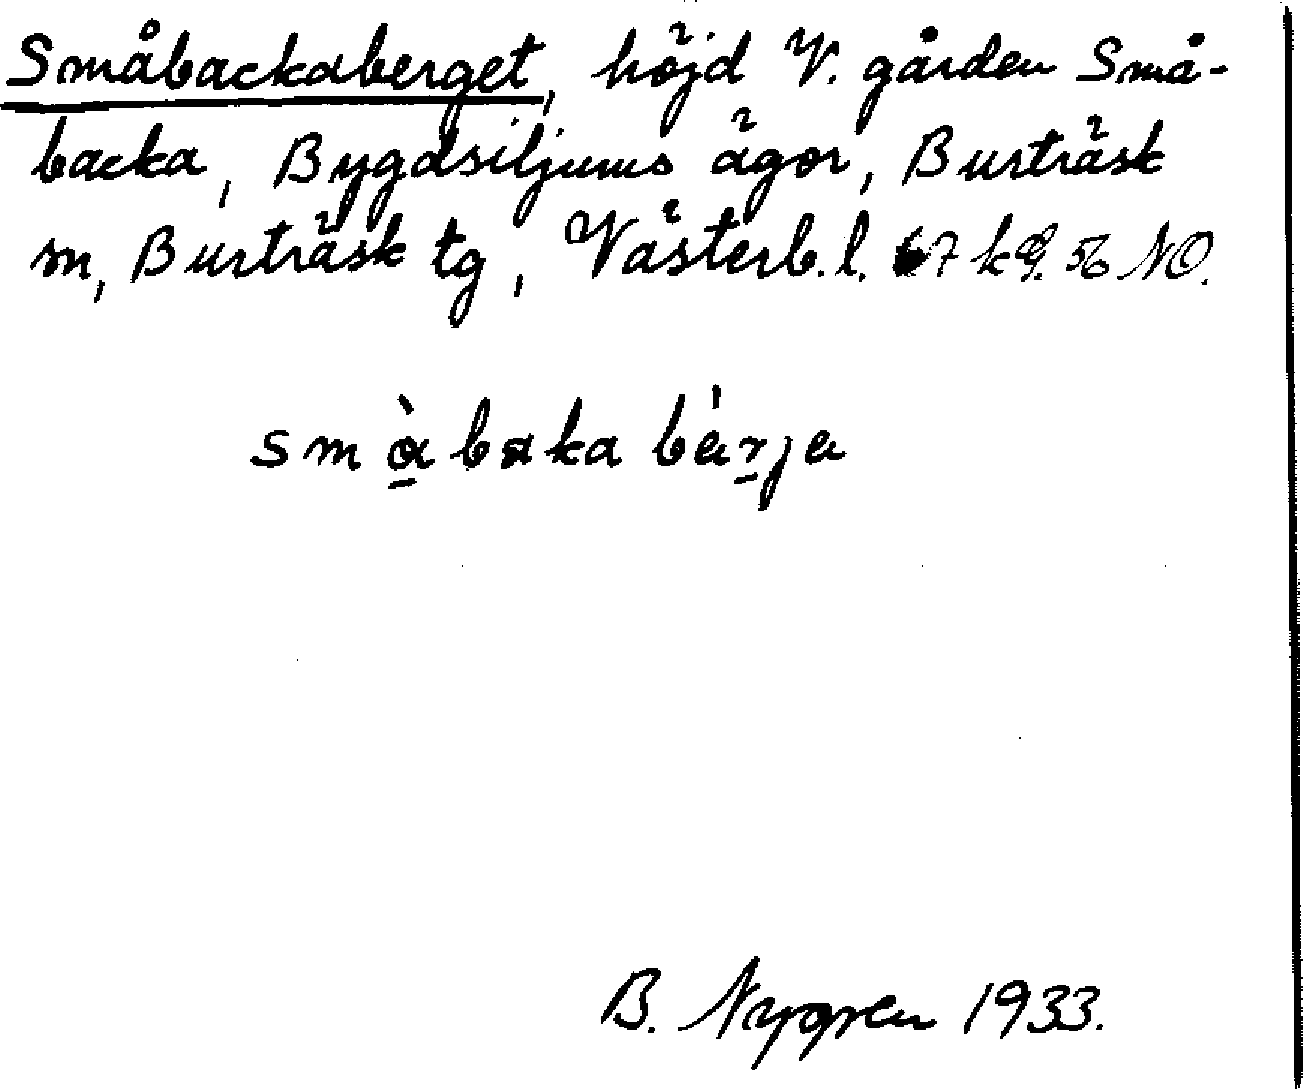 Småbackaberget, höjd V. gården Små-
backa, Bygdsiljums ägor, Burträsk
sn, Burträsk tg, Västerb. l. 67 kg. 56 NO.
smὰ̠baka bár̠ja
B. Nygren 1933.